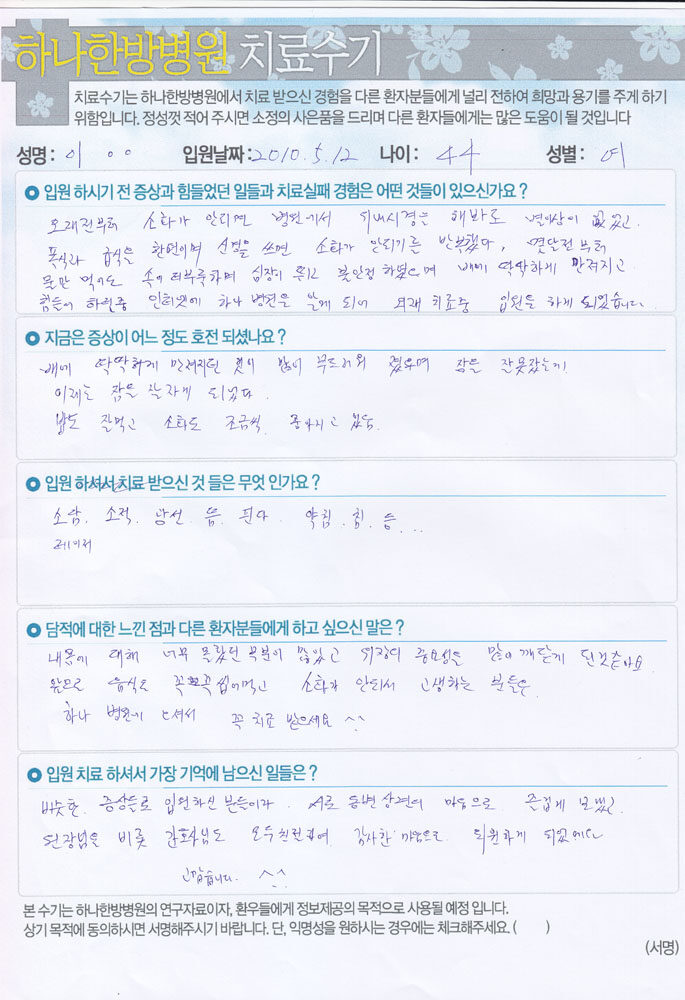 하나한방병원 치료수기
치료수기는 하나한방병원에서 치료 받으신 경험을 다른 환자분들에게 널리 전하여 희망과 용기를 주게 하기
위함입니다. 정성껏 적어 주시면 소정의 사은품을 드리며 다른 환자들에게는 많은 도움이 될 것입니다
성명: 이 ㅇㅇ 입원날짜: 2010.5.12 나이: 44 성별: 여
입원 하시기 전 증상과 힘들었던 일들과 치료실패 경험은 어떤 것들이 있으신가요 ?
오래전부터 소화가 안되면 병원에서 위내시경을 해봐도 별이상이 없었고.
폭식과 급식을 한편이며 신경을 쓰면 소화가 안되기를 반복했다, 몇달전부터
물만 먹어도 속이 더부룩하며 심장이 뛰고 불안정 하였으며 배에 딱딱하게 만져지고
힘들어 하던중 인터넷에 하나 병원을 알게 되어 외래 치료중 입원을 하게 되었습니다.
지금은 증상이 어느 정도 호전 되셨나요 ?
배에 딱딱하게 만져지던 것이 많이 부드러워 졌으며 잠을 잘못잤는데
이제는 잠을 잘자게 되었다.
밥도 잘먹고 소화도 조금씩 좋아지고 있음.
입원 하셔서 치료 받으신 것 들은 무엇 인가요 ?
소담. 소적. 왕선. 뜸. 약침. 침. 등...
레이저
담적에 대한 느낀 점과 다른 환자분들에게 하고 싶으신 말은 ?
내용에 대해 너무 몰랐던 부분이 많았고 위장의 중요성을 많이 깨닫게 된것같아요
앞으로 음식도 꼭꼭 씹어먹고 소화가 안되서 고생하는 분들은
하나 병원에 오셔서 꼭 치료 받으세요 ^^
입원 치료 하셔서 가장 기억에 남으신 일들은 ?
비슷한 증상들로 입원하신 분들이라. 서로 동병상련의 마음으로 즐겁게 보냈고
원장님을 비롯 간호사님도 모두친절하여 감사한 마음으로 퇴원하게 되었네요
고맙습니다. ^^
본 수기는 하나한방병원의 연구자료이자, 환우들에게 정보제공의 목적으로 사용될 예정 입니다.
상기 목적에 동의하시면 서명해주시기 바랍니다. 단, 익명성을 원하시는 경우에는 체크해주세요. ( )
(서명)